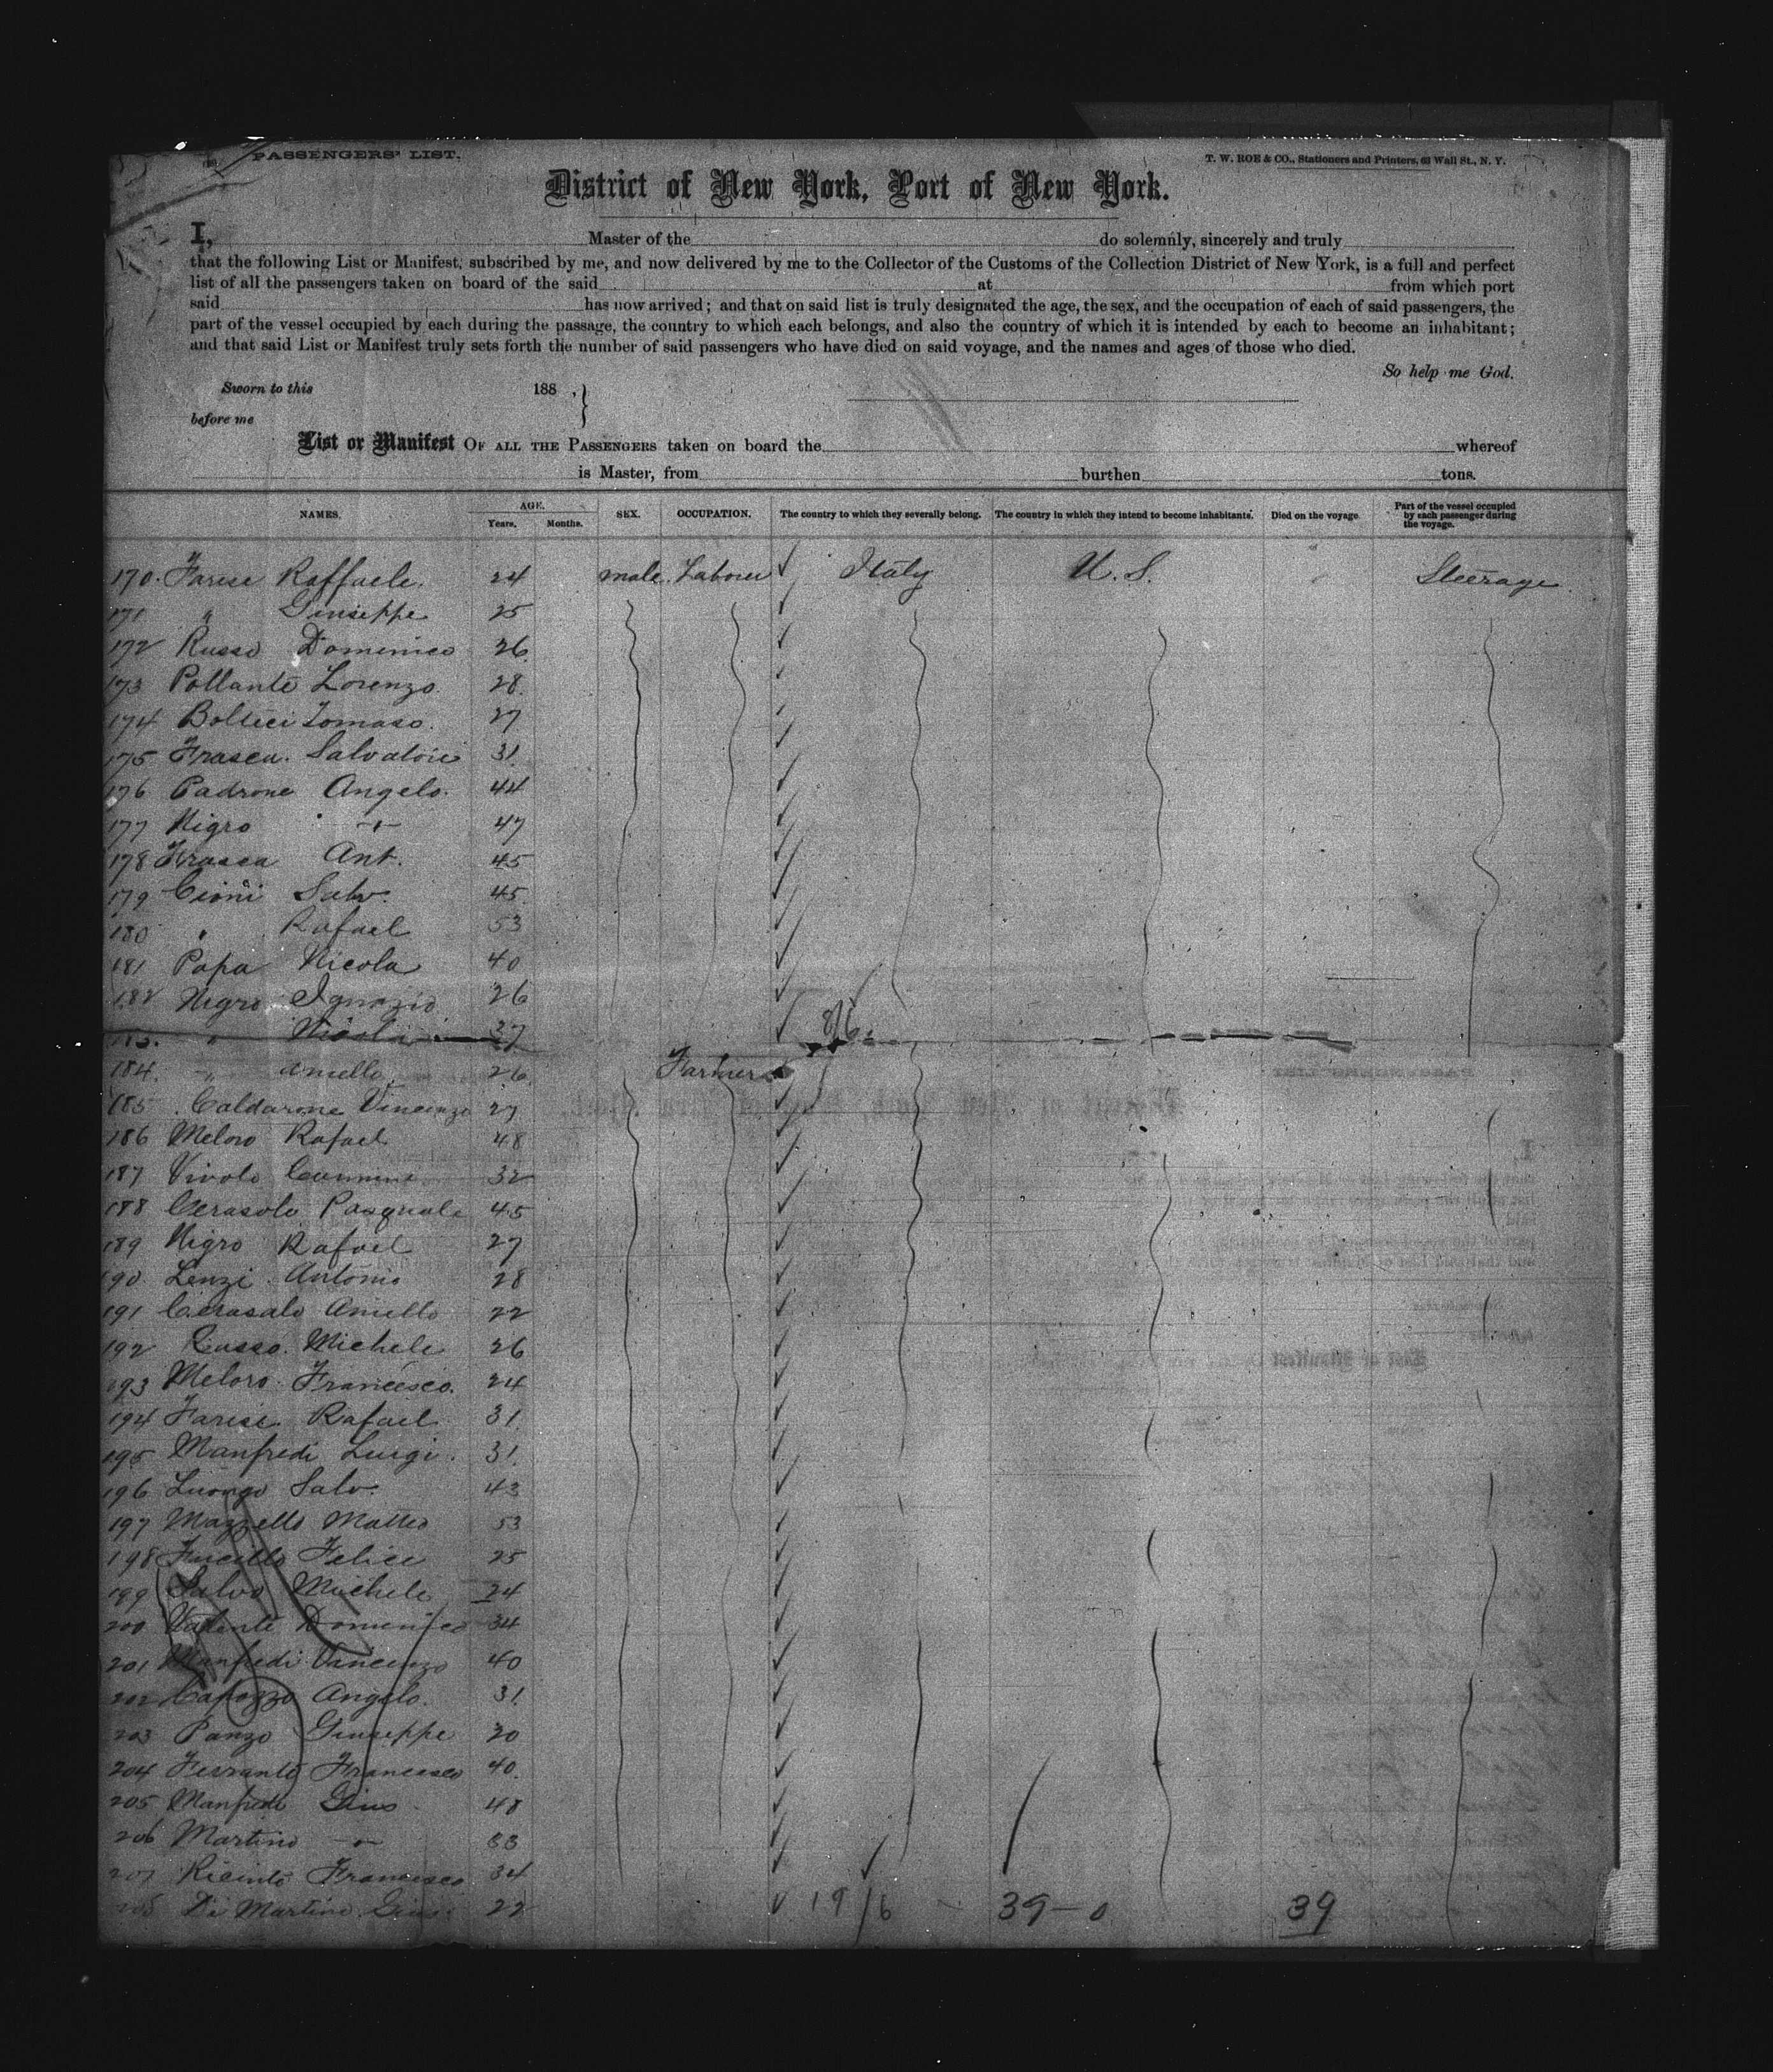 PASSENGERS' LIST.
T. W. ROE & CO., Stationers and Printers, 63 Wall St., N. Y.
District of New York, Port of New York.
I, Master of the do solemnly, sincerely and truly
that the following List or Manifest, subscribed by me, and now delivered by me to the Collector of the Customs of the Collection District of New York, is a full and perfect
list of all the passengers taken on board of the said at from which port
said has now arrived; and that on said list is truly designated the age, the sex, and the occupation of each of said passengers, the
part of the vessel occupied by each during the passage, the country to which each belongs, and also the country of which it is intended by each to become an inhabitant;
and that said List or Manifest truly sets forth the number of said passengers who have died on said voyage, and the names and ages of those who died.
So help me God.
Sworn to this 188 .
before me
List or Manifest OF ALL THE PASSENGERS taken on board the whereof
is Master, from burthen tons.
NAMES. AGE. Years. Months. SEX. OCCUPATION. The country to which they severally belong. The country in which they intend to become inhabitants. Died on the voyage. Part of the vessel occupied by each passenger during the voyage.
170. Farese Raffaele. 24 male Laborer Italy U. S. Steerage
171 " Giuseppe 25
172 Russo Domenico 26
173 Pollante Lorenzo 28.
174 Tomaso. 27
175 Frasca. Salvatore 31
176 Padrone Angelo. 44
177 Nigro -"- 47
178 Frasca Ant. 45
179 Cioni Salv. 45.
180 " Rafael 53
181 Papa Nicola 40
182 Nigro Ignazio 26
183. " Nicola 37
8/6
184. " Aniello 26 Farmer
185 Caldarone Vincenzo 27
186 Meloro Rafael 48
187 Vivolo Carmine 32
188 Cerasolo Pasquale 45
189 Nigro Rafael 27
190 Lenzi Antonio 28
191 Cerasalo Aniello 22
192 Russo. Michele 26
193 Meloro Francesco. 24
194 Farese Rafael 31
195 Manfredi Luigi. 31.
196 Luongo Salv. 43
197 Mazzello Matteo 53
198 Fucillo Felice 25
199 Salvo Michele 24
200 Valente Domenico 34
201 Manfredi Vincenzo 40
202 Capozzo Angelo. 31.
203 Panzo Giuseppe 20
204 Ferrante Francesco 40.
205 Manfredi Gius 48
206 Martino -"- 33
207 Francesco 34
208 Di Martino Gius. 22
19/6 39-0 39